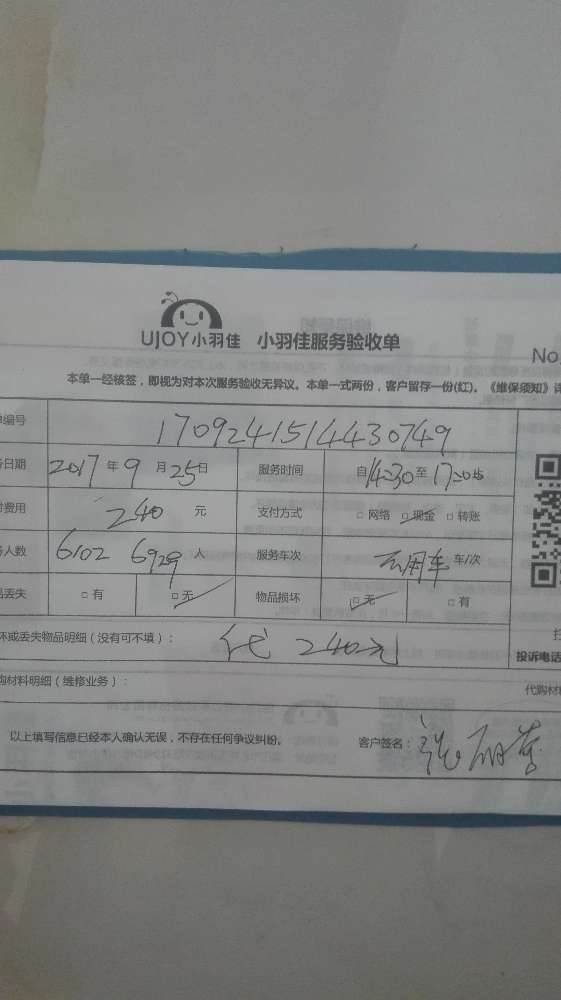 UJOY小羽佳 小羽佳服务验收单
No.
本单一经核签，即视为对本次服务验收无异议。本单一式两份，客户留存一份(红)。《维保须知》详
单编号 1709241514430749
务日期 2017年9月25日 服务时间 自14:30至17:00
付费用 240元 支付方式 □网络 □现金 □转账
务人数 6102 6929人 服务车次 不用车 车/次
品丢失 □有 □无 物品损坏 □无 □有
坏或丢失物品明细（没有可不填）： 代 240元
投诉电话
购材料明细（维修业务）： 代购材
以上填写信息已经本人确认无误，不存在任何争议纠纷。 客户签名：